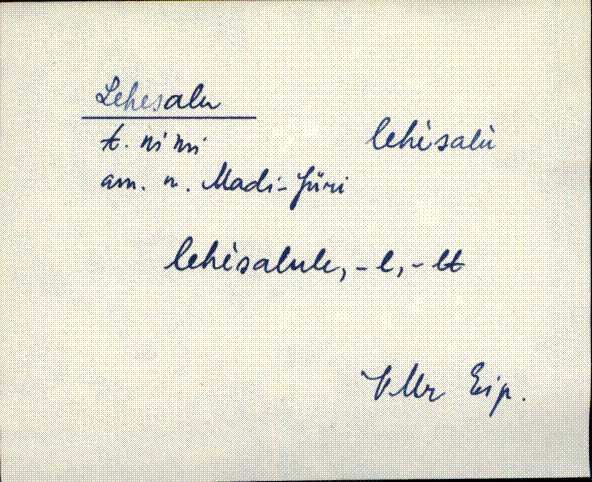 Lehesalu
t. nimi lehèsalù
am. n. Madi-Jüri
lehèsalule, -l, -lt
VMr Eip.